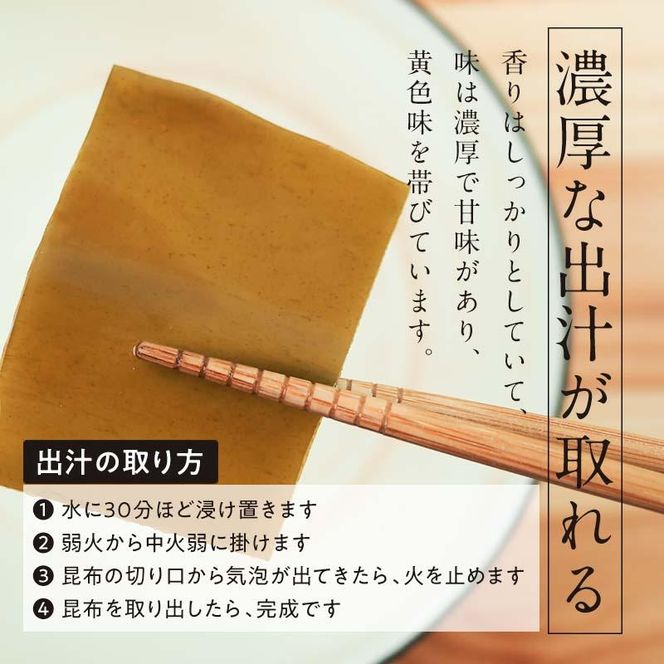 濃厚な出汁が取れる
香りはしっかりとしていて、
味は濃厚で甘味があり、
黄色味を帯びています。
出汁の取り方
❶ 水に30分ほど浸け置きます
❷ 弱火から中火弱に掛けます
❸ 昆布の切り口から気泡が出てきたら、火を止めます
❹ 昆布を取り出したら、完成です